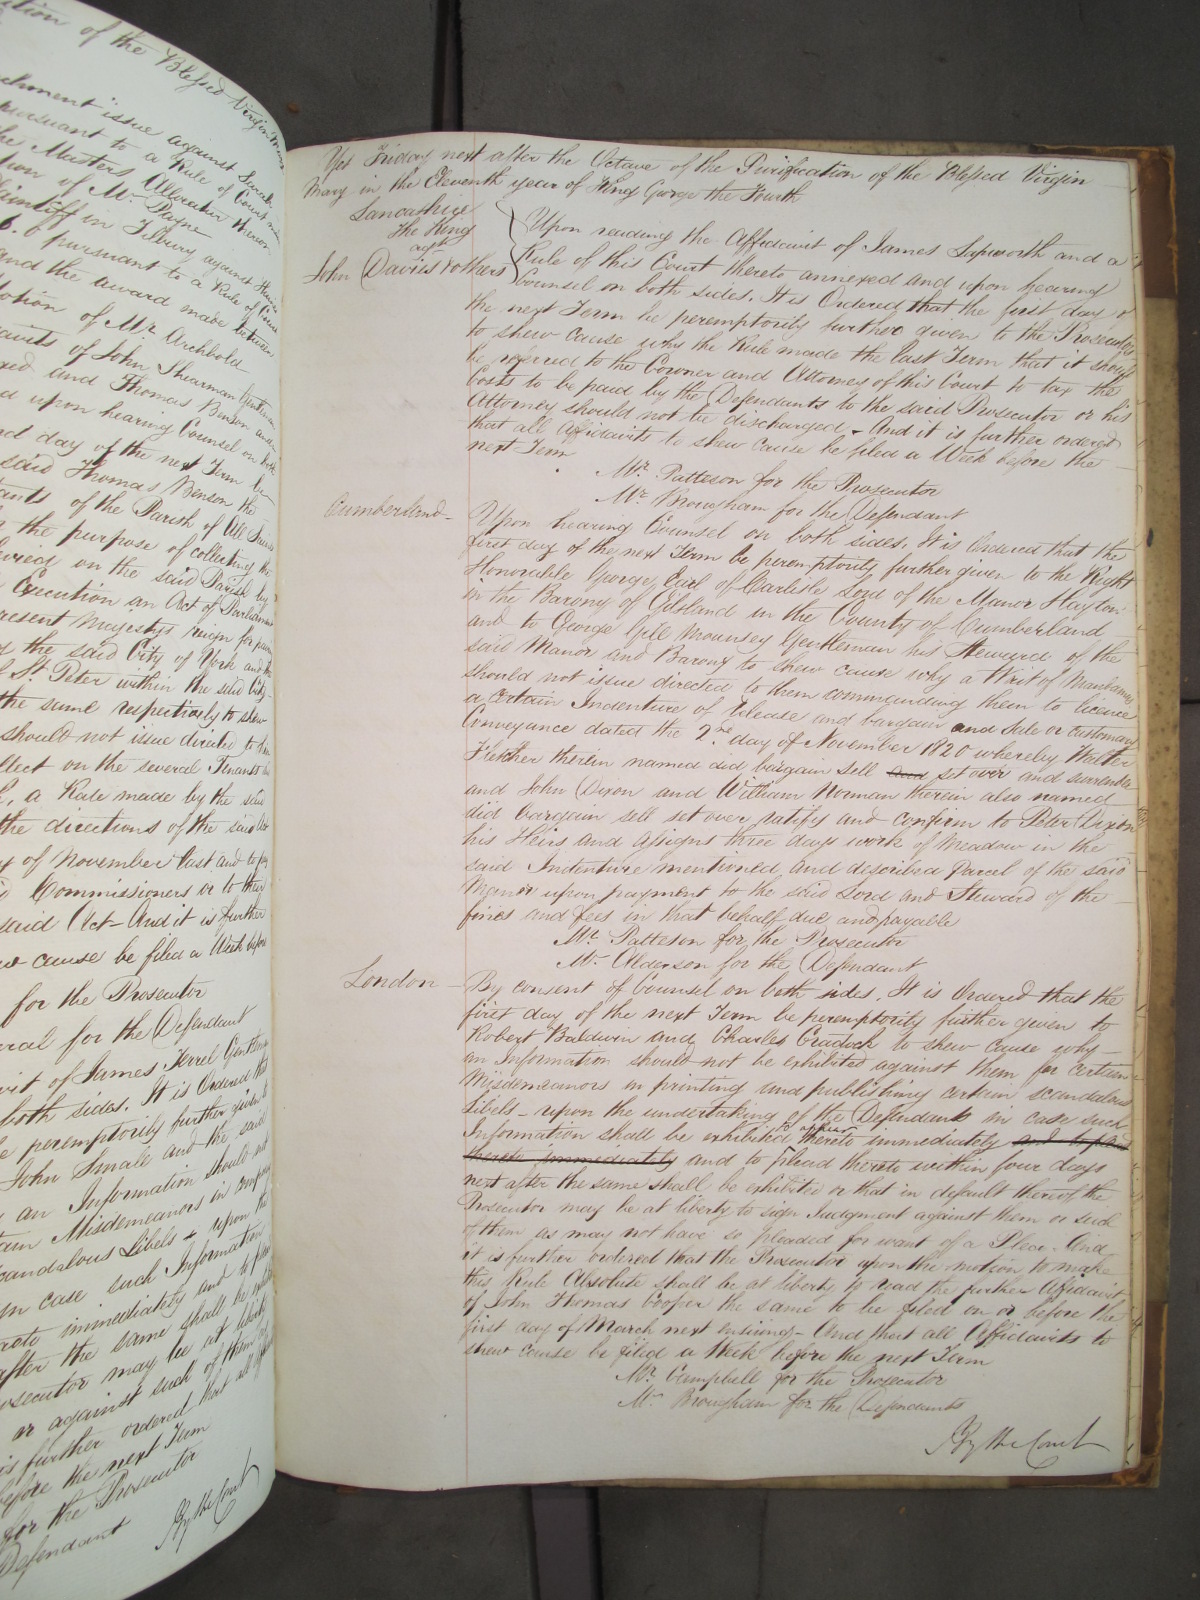 ution of the Blessed Virgin Mary
chment issue against Sarah
pursuant to a Rule of Court
the Masters Allocatur thereon
tion of Mr. Payne
Plaintiff in Tilbury against
6. o pursuant to a Rule of Court
and the award made between
Motion of Mr. Archbold
avits of John Shearman Gentleman
xed and Thomas Benson and
d upon hearing Counsel on both
nd day of the next Term be
said Thomas Benson the
tants of the Parish of All
the purpose of collecting the
on the said Parish by
Execution an Act of Parliament
resent Majestys reign for
the said City of York and the
St. Peter within the said City
the same respectively to shew
should not issue directed to
llect on the several Tenants
a Rate made by the said
the directions of the said Act
of November last and to pay
Commissioners or to their
said Act - And it is further
cause be filed a Week before
for the Prosecutor
eral for the Defendant
vit of James Terrel Gentleman
both sides. It is Ordered that
peremptorily further given to
John Small and the said
an Information should not
tain Misdemeanors in
candalous Libels - upon the
in case such Information
reto immediately and to plead
after the same shall be exhibited
osecutor may be at liberty
or against such of them
is further ordered that all
before the next Term
for the Prosecutor
Defendant
By the Court
Yet Friday next after the Octave of the Purification of the Blessed Virgin
Mary in the Eleventh year of King George the Fourth
Lancashire
The King
agt
John Davies & others
Upon reading the Affidavit of James Lapworth and a
Rule of this Court thereto annexed and upon hearing
Counsel on both sides. It is Ordered that the first day of
the next Term be peremptorily further given to the Prosecutor
to shew cause why the Rule made the last Term that it should
be referred to the Coroner and Attorney of this Court to tax the
Costs to be paid by the Defendants to the said Prosecutor or his
Attorney should not be discharged - And it is further ordered
that all Affidavits to shew cause be filed a Week before the
next Term
Mr. Patteson for the Prosecutor
Mr. Brougham for the Defendant
Cumberland -
Upon hearing Counsel on both sides. It is Ordered that the
first day of the next Term be peremptorily further given to the Right
Honorable George Earl of Carlisle Lord of the Manor Hayton
in the Barony of Gilsland in the County of Cumberland
and to George Gill Mounsey Gentleman his Steward of the
said Manor and Barony to shew cause why a Writ of Mandamus
should not issue directed to them commanding them to licence
a certain Indenture of Release and bargain and Sale or customary
Conveyance dated the 2nd. day of November 1820 whereby Walter
Fletcher therein named did bargain sell and set over and surrender
and John Dixon and William Norman therein also named
did bargain sell set over ratify and confirm to Peter Dixon
his Heirs and assigns three days work of Meadow in the
said Indenture mentioned and described Parcel of the said
Manor upon payment to the said Lord and Steward of the
fines and fees in that behalf due and payable
Mr. Patteson for the Prosecutor
Mr. Alderson for the Defendant
London -
By consent of Counsel on both sides. It is Ordered that the
first day of the next Term be peremptorily further given to
Robert Baldwin and Charles Cradock to shew cause why
an Information should not be exhibited against them for certain
Misdemeanors in printing and publishing certain scandalous
Libels - upon the undertaking of the Defendants in case such
Information shall be exhibited to appear thereto immediately and to plead
thereto immediately and to plead thereto within four days
next after the same shall be exhibited or that in default thereof the
Prosecutor may be at liberty to sign Judgment against them or such
of them as may not have so pleaded for want of a Plea. And
it is further ordered that the Prosecutor upon the motion to make
this Rule Absolute shall be at liberty to read the further Affidavit
of John Thomas Cooper the same to be filed on or before the
first day of March next ensuing - And that all Affidavits to
shew cause be filed a Week before the next Term
Mr. Campbell for the Prosecutor
Mr. Brougham for the Defendants
By the Court